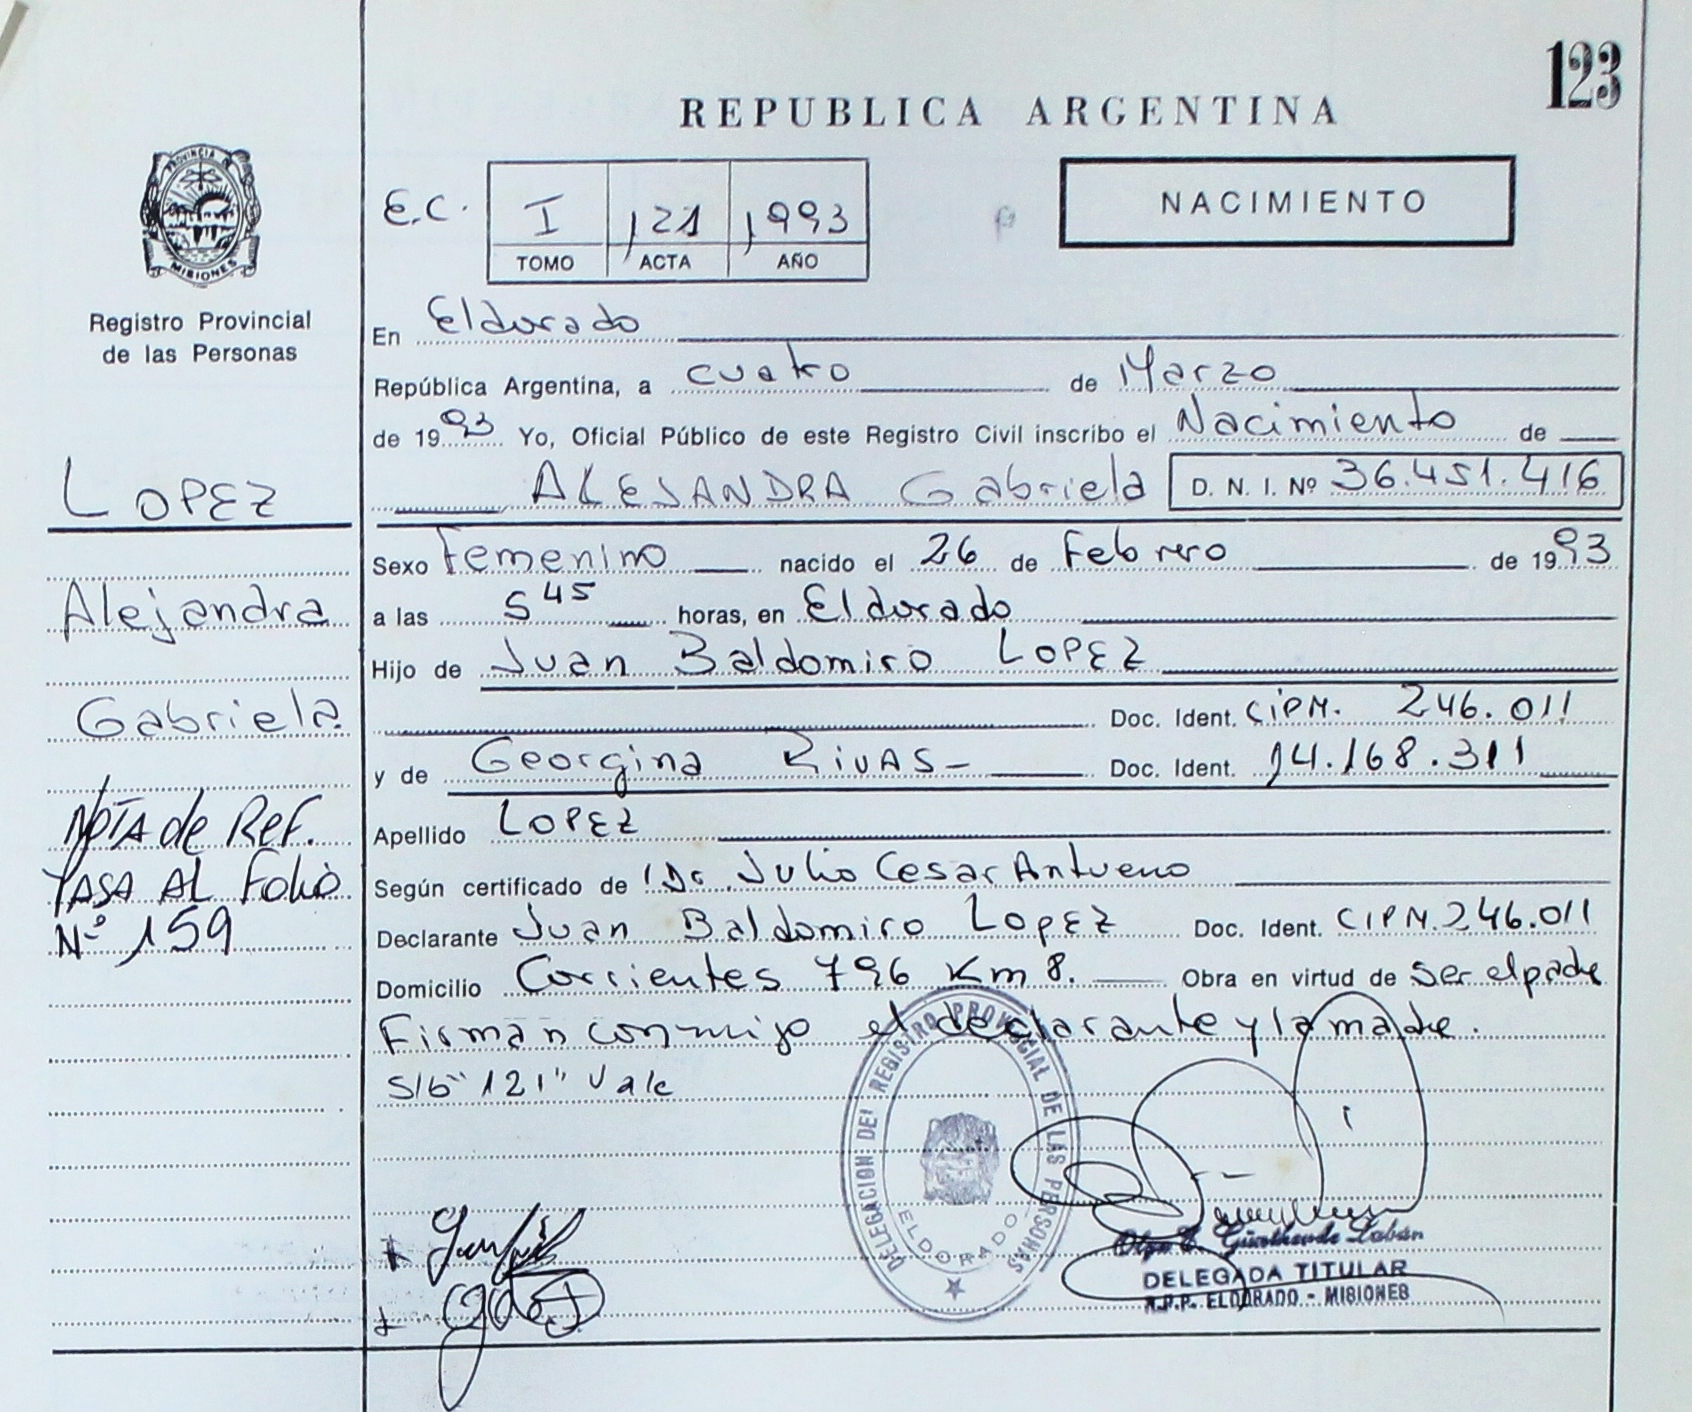 123
REPUBLICA ARGENTINA
PROVINCIA DE
MISIONES
E.C. I 121 1993
TOMO ACTA AÑO
NACIMIENTO
Registro Provincial
de las Personas
En Eldorado
República Argentina, a cuatro de Marzo
de 1993 Yo, Oficial Público de este Registro Civil inscribo el Nacimiento de
ALEJANDRA Gabriela D. N. I. Nº 36.451.416
Sexo Femenino nacido el 26 de Febrero de 1993
a las 5 45 horas, en Eldorado
Hijo de Juan Baldomiro LOPEZ
Doc. Ident. CIPM. 246.011
y de Georgina RIVAS- Doc. Ident. 14.168.311
Apellido LOPEZ
Según certificado de Dr. Julio Cesar Antueno
Declarante Juan Baldomiro LOPEZ Doc. Ident. CIPM.246.011
Domicilio Corrientes 796 Km 8. Obra en virtud de ser el padre
Firman conmigo el declarante y la madre.
S/b "121" Vale
LOPEZ
Alejandra
Gabriela
NOTA de REF.
PASA AL Folio
Nº 159
DELEGACION DEL REGISTRO PROVINCIAL DE LAS PERSONAS
ELDORADO
DELEGADA TITULAR
R.P.P. ELDORADO - MISIONES